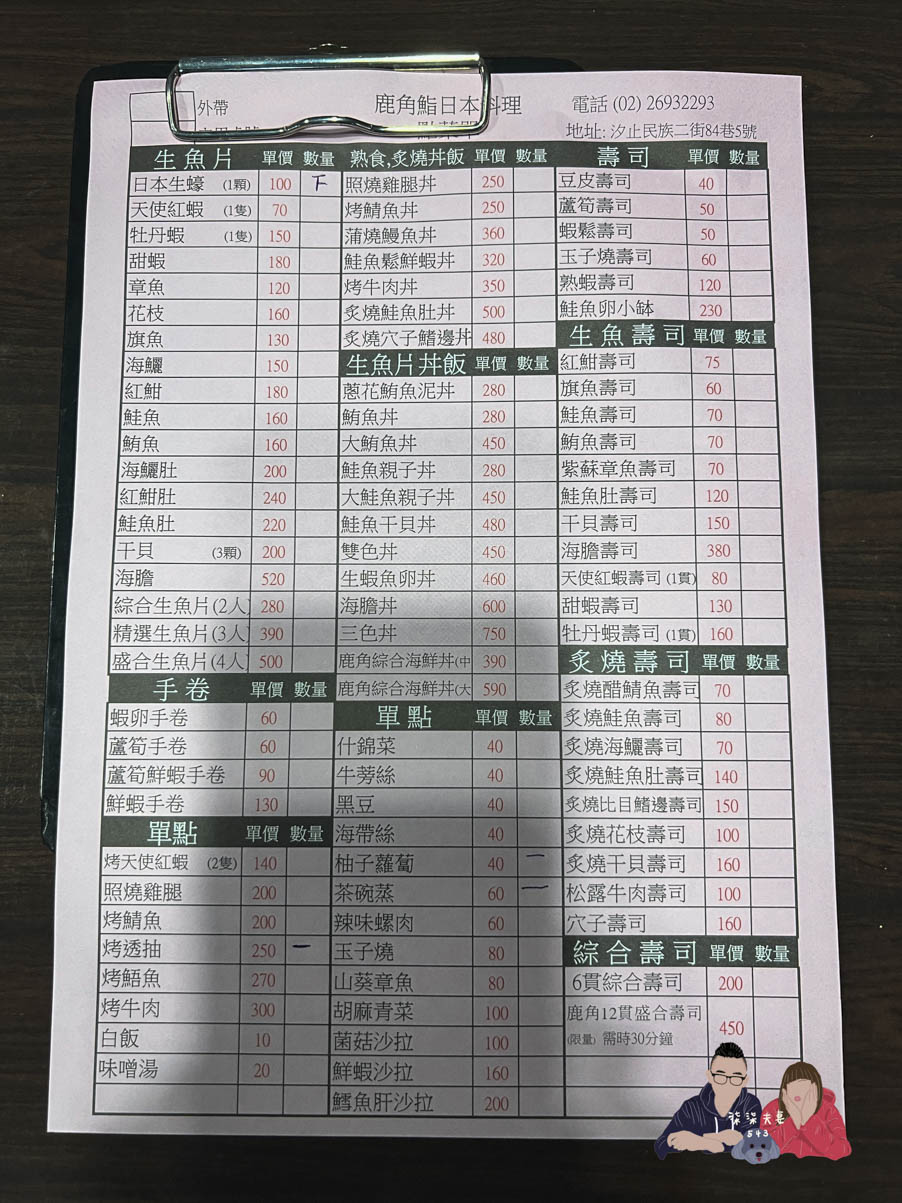 外帶
鹿角鮨日本料理
電話 (02) 26932293
地址: 汐止民族二街84巷5號
生魚片 單價 數量
日本生蠔 (1顆) 100 下
天使紅蝦 (1隻) 70
牡丹蝦 (1隻) 150
甜蝦 180
章魚 120
花枝 160
旗魚 130
海鱺 150
紅魽 180
鮭魚 160
鮪魚 160
海鱺肚 200
紅魽肚 240
鮭魚肚 220
干貝 (3顆) 200
海膽 520
綜合生魚片(2人) 280
精選生魚片(3人) 390
盛合生魚片(4人) 500
手卷 單價 數量
蝦卵手卷 60
蘆筍手卷 60
蘆筍鮮蝦手卷 90
鮮蝦手卷 130
單點 單價 數量
烤天使紅蝦 (2隻) 140
照燒雞腿 200
烤鯖魚 200
烤透抽 250 一
烤鯃魚 270
烤牛肉 300
白飯 10
味噌湯 20
熟食,炙燒丼飯 單價 數量
照燒雞腿丼 250
烤鯖魚丼 250
蒲燒鰻魚丼 360
鮭魚鬆鮮蝦丼 320
烤牛肉丼 350
炙燒鮭魚肚丼 500
炙燒穴子鰭邊丼 480
生魚片丼飯 單價 數量
蔥花鮪魚泥丼 280
鮪魚丼 280
大鮪魚丼 450
鮭魚親子丼 280
大鮭魚親子丼 450
鮭魚干貝丼 480
雙色丼 450
生蝦魚卵丼 460
海膽丼 600
三色丼 750
鹿角綜合海鮮丼(中 390
鹿角綜合海鮮丼(大 590
單點 單價 數量
什錦菜 40
牛蒡絲 40
黑豆 40
海帶絲 40
柚子蘿蔔 40 一
茶碗蒸 60 一
辣味螺肉 60
玉子燒 80
山葵章魚 80
胡麻青菜 100
菌菇沙拉 100
鮮蝦沙拉 160
鱈魚肝沙拉 200
壽司 單價 數量
豆皮壽司 40
蘆筍壽司 50
蝦鬆壽司 50
玉子燒壽司 60
熟蝦壽司 120
鮭魚卵小缽 230
生魚壽司 單價 數量
紅魽壽司 75
旗魚壽司 60
鮭魚壽司 70
鮪魚壽司 70
紫蘇章魚壽司 70
鮭魚肚壽司 120
干貝壽司 150
海膽壽司 380
天使紅蝦壽司 (1貫) 80
甜蝦壽司 130
牡丹蝦壽司 (1貫) 160
炙燒壽司 單價 數量
炙燒醋鯖魚壽司 70
炙燒鮭魚壽司 80
炙燒海鱺壽司 70
炙燒鮭魚肚壽司 140
炙燒比目鰭邊壽司 150
炙燒花枝壽司 100
炙燒干貝壽司 160
松露牛肉壽司 100
穴子壽司 160
綜合壽司 單價 數量
6貫綜合壽司 200
鹿角12貫盛合壽司 450
(限量) 需時30分鐘
柒柒夫妻
543